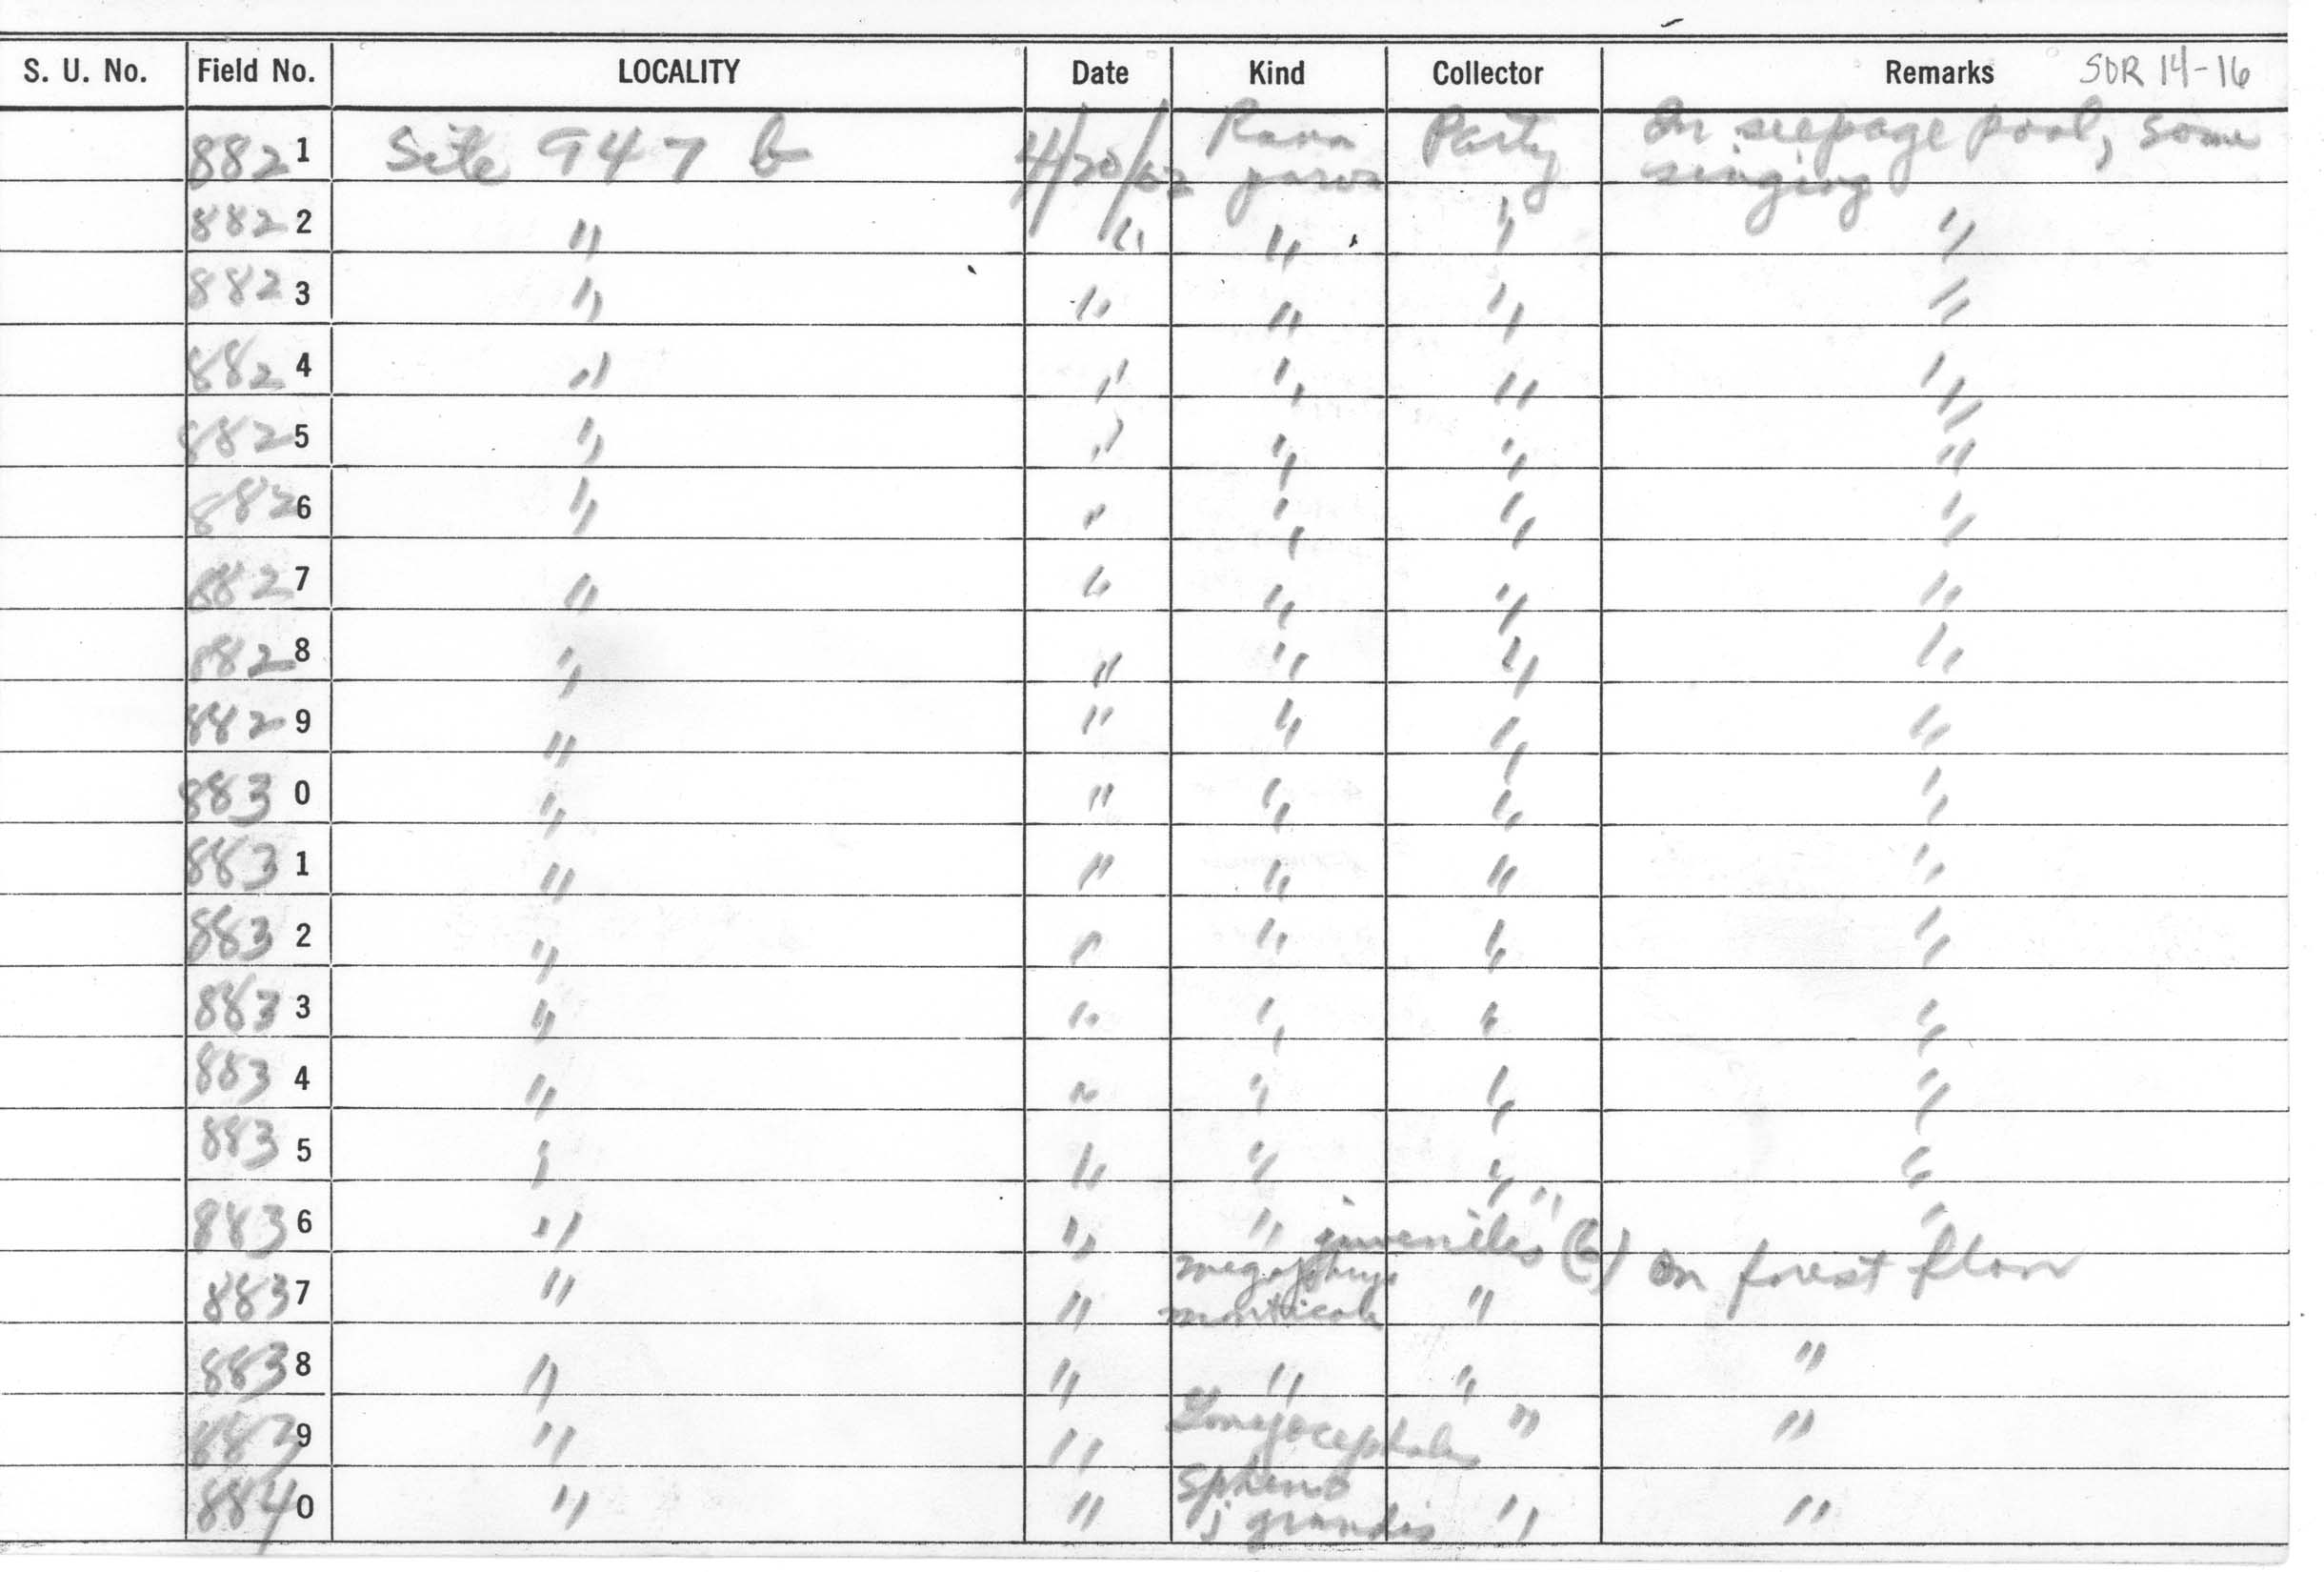 S. U. No. Field No. LOCALITY Date Kind Collector Remarks SDR 14-16
8821 Site 947 b 4/20/62 Rana parva Party In seepage pool, some singing
8822 " " " " "
8823 " " " " "
8824 " " " " "
8825 " " " " "
8826 " " " " "
8827 " " " " "
8828 " " " " "
8829 " " " " "
8830 " " " " "
8831 " " " " "
8832 " " " " "
8833 " " " " "
8834 " " " " "
8835 " " " " "
8836 " " " juveniles (6) " "
8837 " " Megophrys monticola " On forest floor
8838 " " " " "
8839 " " Gonyocephalus " "
8840 " " Spheno j grandis " "